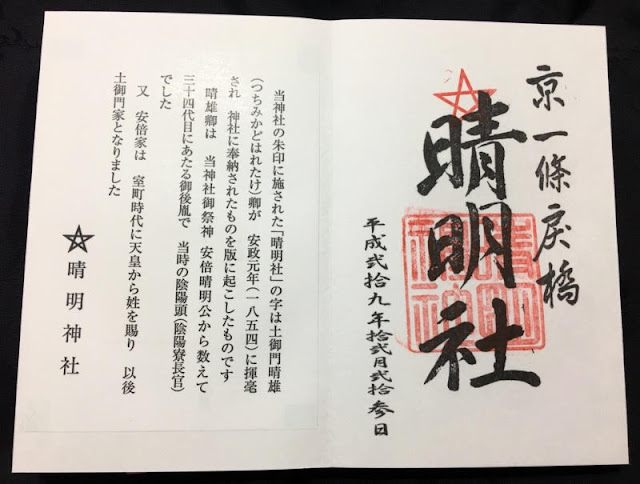 京一條戻橋
晴明社
平成弐拾九年拾弐月弐拾参日
当神社の朱印に施された「晴明社」の字は土御門晴雄
(つちみかどはれたけ)卿が 安政元年(一八五四)に揮毫
され 神社に奉納されたものを版に起こしたものです
晴雄卿は 当神社御祭神 安倍晴明公から数えて
三十四代目にあたる御後胤で 当時の陰陽頭(陰陽寮長官)
でした
又 安倍家は 室町時代に天皇から姓を賜り 以後
土御門家となりました
晴明神社